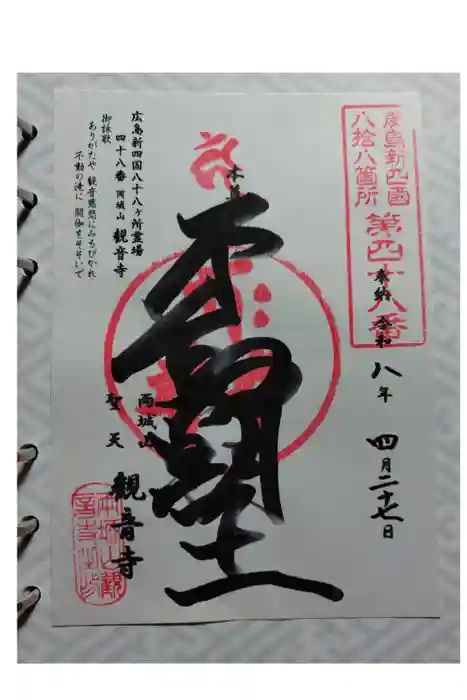 廣島新四国
八拾八箇所
第四十八番
奉納 令和 八年 四月二十七日
本尊
両城山
聖天
観音寺
広島新四国八十八ヶ所霊場
四十八番 両城山 観音寺
御詠歌
ありがたや 観音慈悲にみちびかれ
不動の滝に 閼伽をそそいで